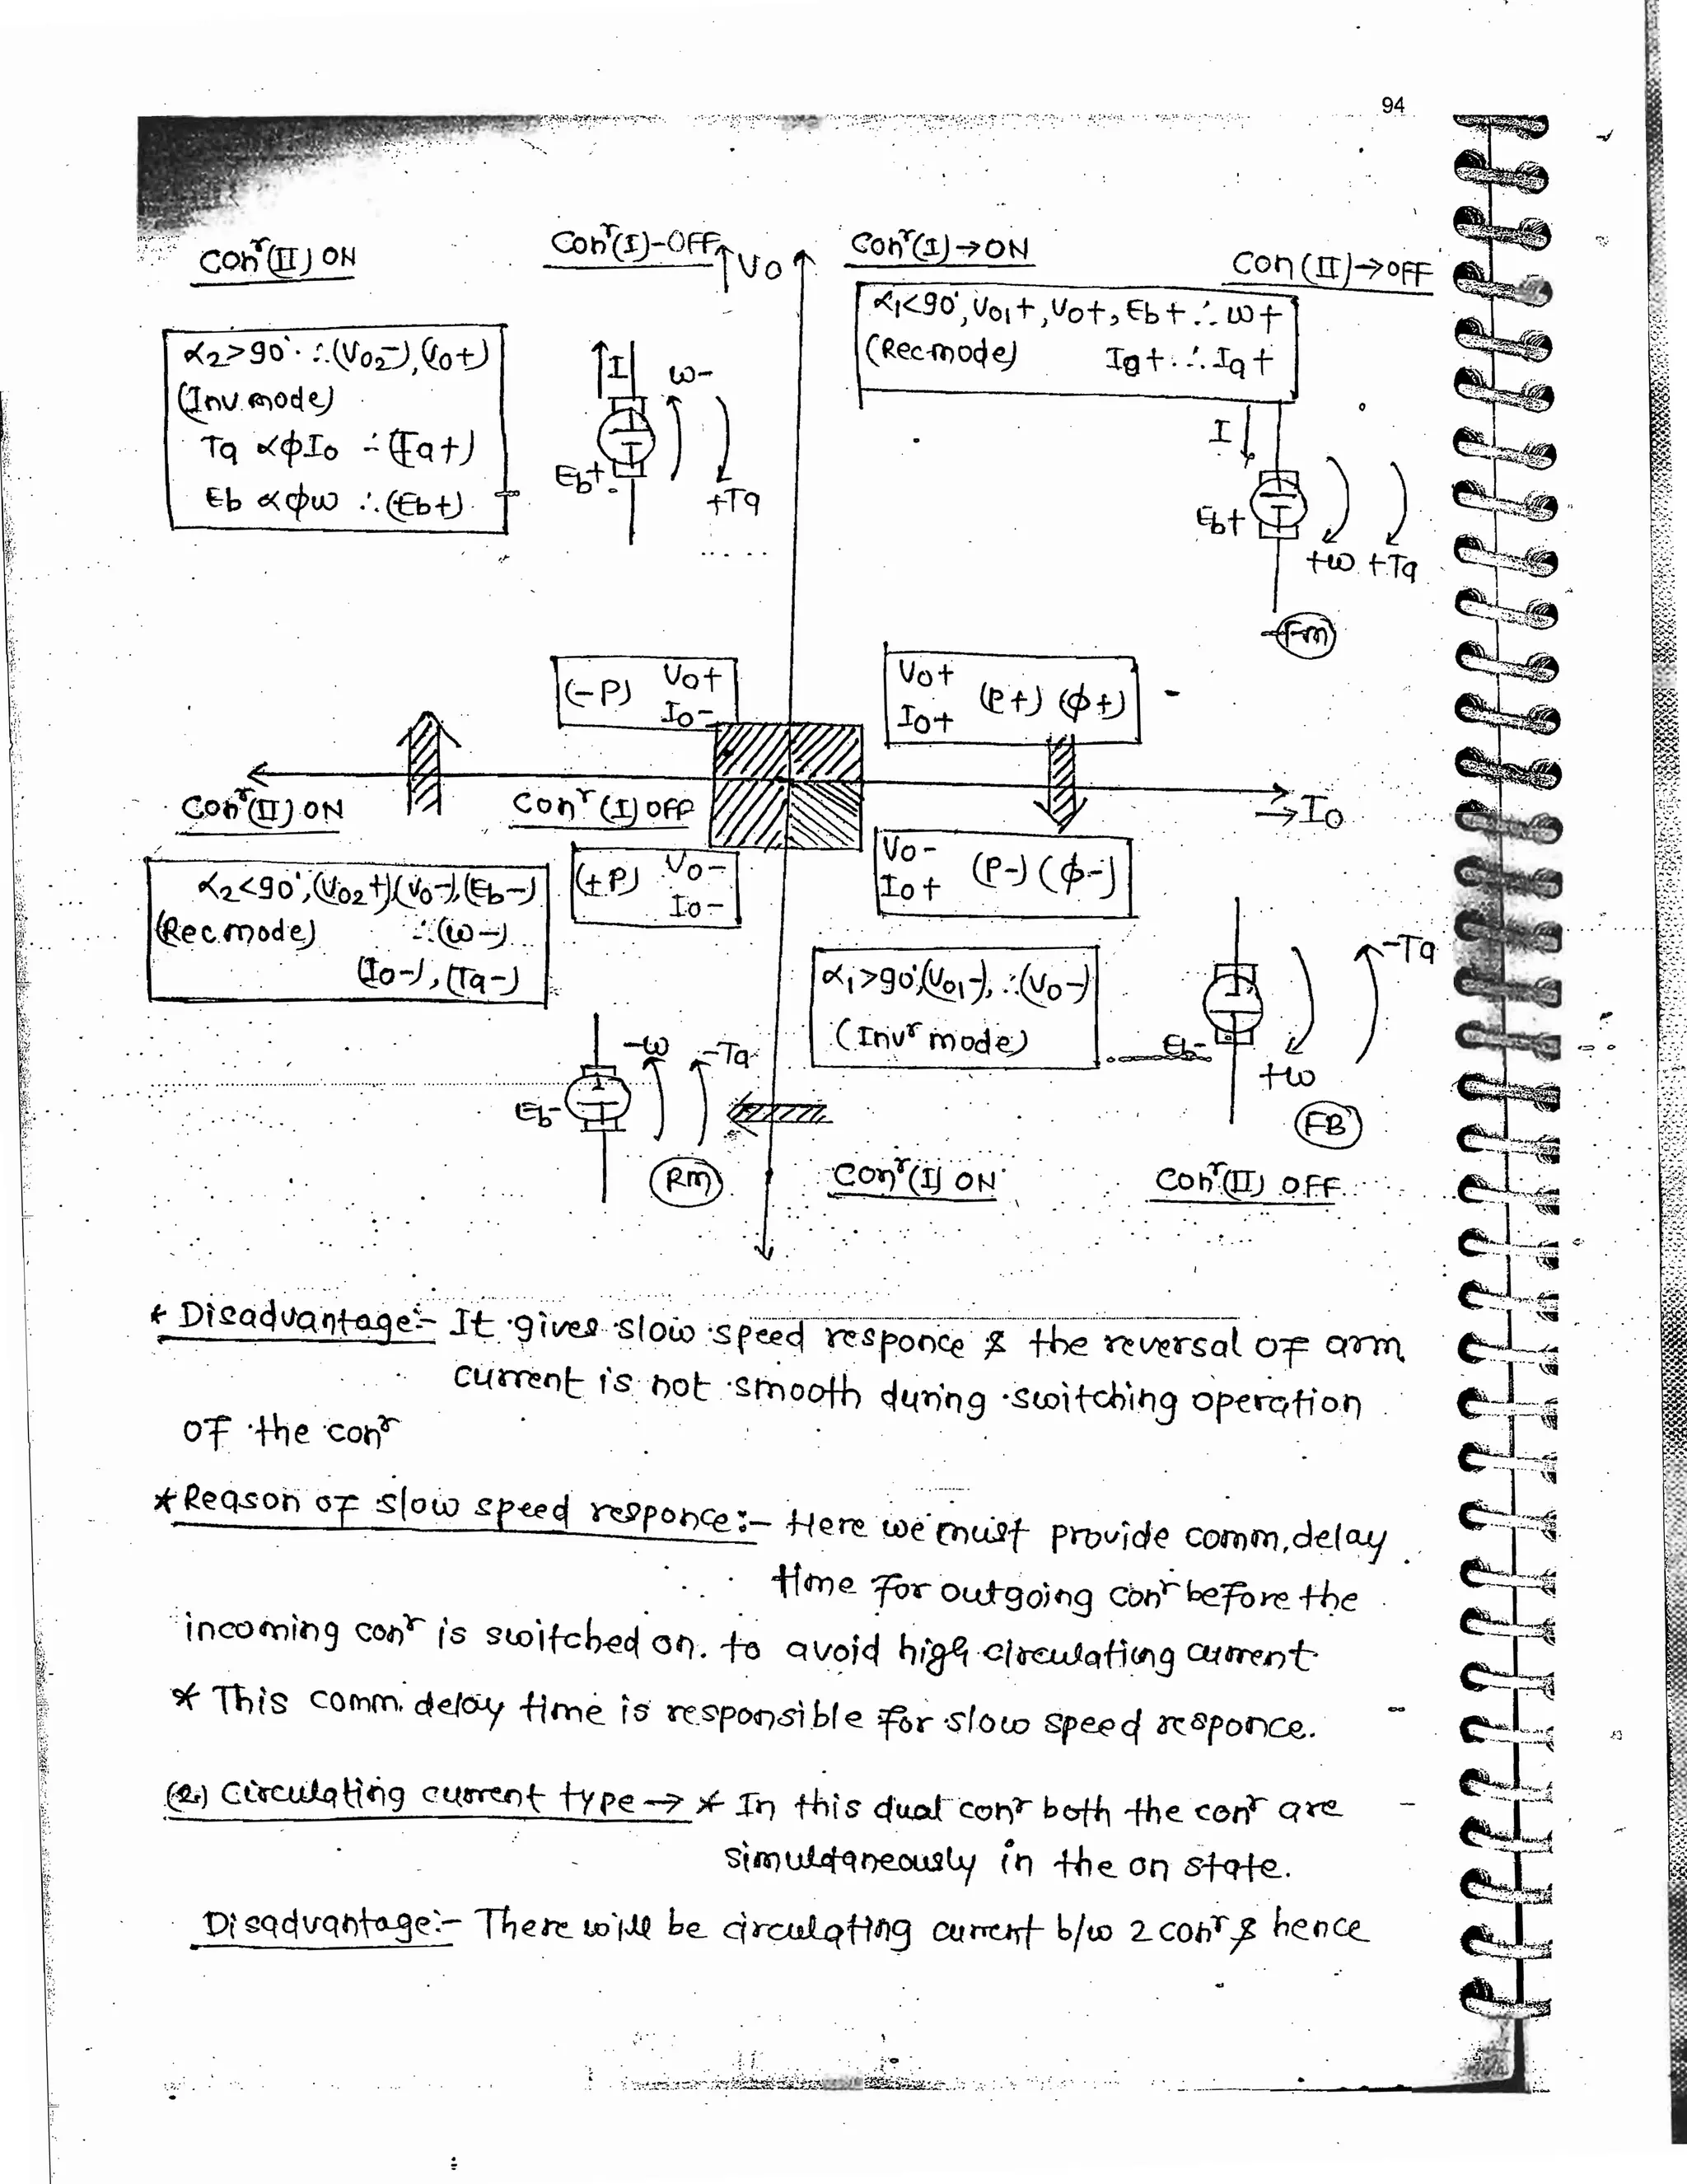 94
Conʳ(II) ON
Conʳ(I)-OFF
↑Vo
Conʳ(I)→ON
Con(II)→OFF
α₁<90°, Vo₁+, Vo+, Eb+ ∴ ω+
(Rec mode) Ia+ ∴ Ta+
α₂>90° ∴(Vo₂-), (Vo+)
(Inv. mode)
Ta ∝ϕIo ∴(Ta+)
Eb ∝ϕω ∴(Eb+)
I
ω-
Eb+
+Ta
I
Eb+
+ω +Ta
Fm
(-P) Vo+
Io-
Vo+
Io+ (P+) (ϕ+)
Conʳ(II) ON
Conʳ(I) OFF
→Io
(+P) Vo-
Io-
Vo-
Io+ (P-) (ϕ-)
α₂<90°, (Vo₂+)(Vo-), (Eb-)
(Rec. mode) ∴(ω-)
(Io-), (Ta-)
α₁>90°, (Vo₁-), ∴(Vo-)
(Invʳ mode)
-Ta
Eb-
+ω
FB
-ω -Ta
Eb-
Rm
Conʳ(I) ON
Conʳ(II) OFF
* Disadvantage:- It gives slow speed responce & the reversal of arm
current is not smooth during switching operation
of the conʳ
* Reason of slow speed responce:- Here we must provide comm. delay
time for outgoing conʳ before the
incoming conʳ is switched on. to avoid high circulating current
* This comm. delay time is responsible for slow speed responce.
(2.) Circulating current type → * In this dual conʳ both the conʳ are
simultaneously in the on state.
Disadvantage:- There will be circulating current b/w 2 conʳ & hence